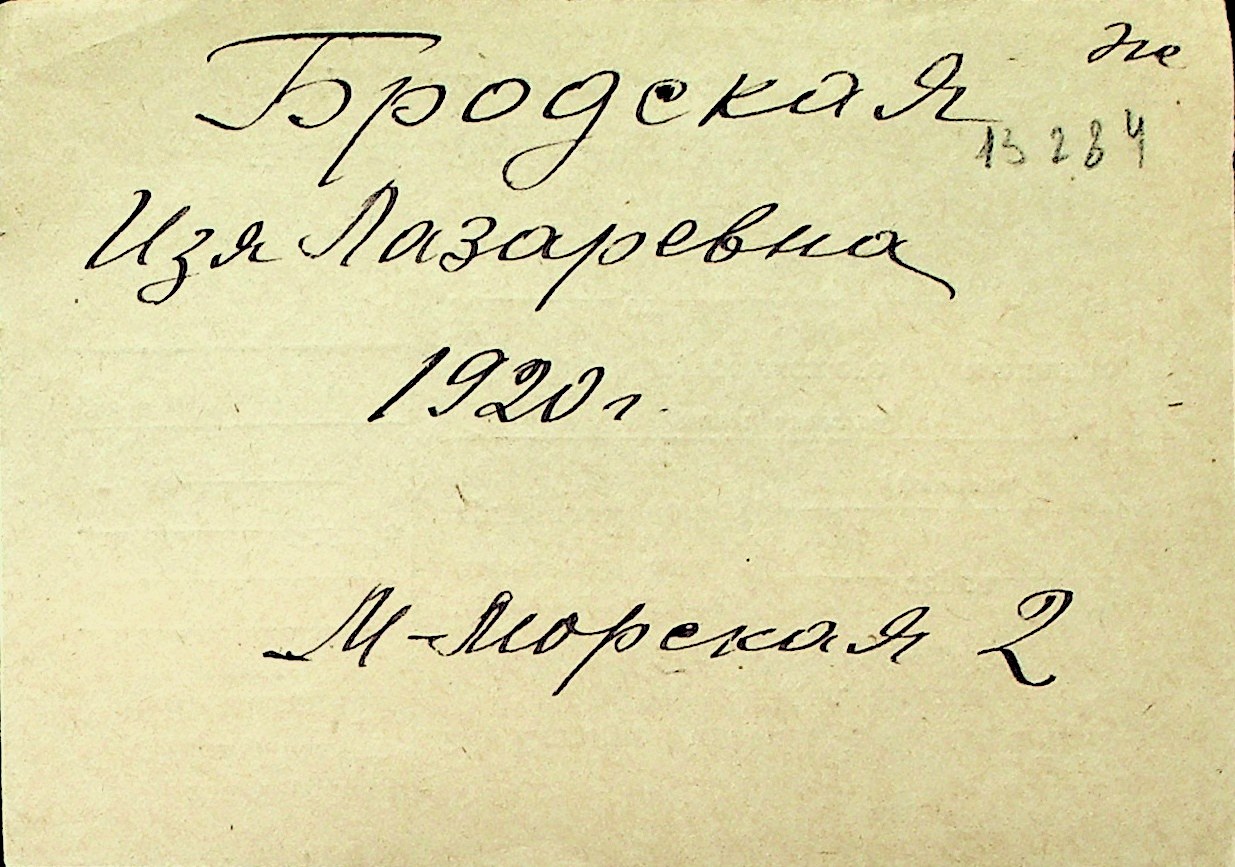 Бродская
13284
Изя Лазаревна
1920 г.
М-Морская 2